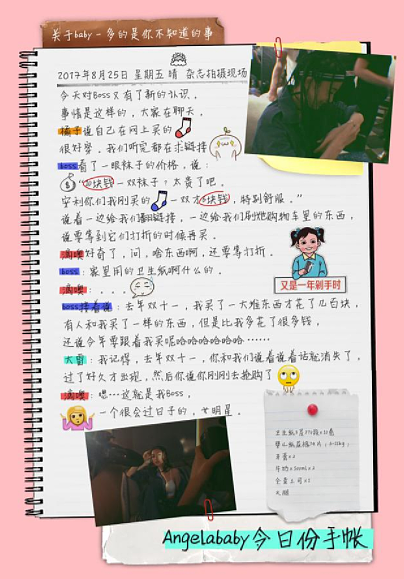 关于baby-多的是你不知道的事
2017年8月25日 星期五 晴 杂志拍摄现场
今天对Boss又有了新的认识。
事情是这样的，大家在聊天。
橘子说自己在网上买的
很好穿，我们听完都在求链接
boss看了一眼袜子的价格，说：
块钱一双袜子？太贵了吧。
安利你们我刚买的 一双才 块钱，特别舒服。”
说着一边给我们翻链接，一边给我们刷她购物车里的东西，
说要等到它们打折的时候再买。
好奇了，问，啥东西啊，还要等打折。
boss：家里用的卫生纸啊什么的。
：。。。。
boss接着说：去年双十一，我买了一大堆东西才花了几百块，
有人和我买了一样的东西，但是比我多花了很多钱，
还说今年要跟着我买呢哈哈哈哈哈哈……
：我记得，去年双十一，你和我们说着说着话就消失了，
过了好久才出现，然后你说你刚刚去抢购了
：嗯…这就是我Boss。
一个很会过日子的，女明星。
又是一年剁手时
牙膏x2
Angelababy今日份手帐